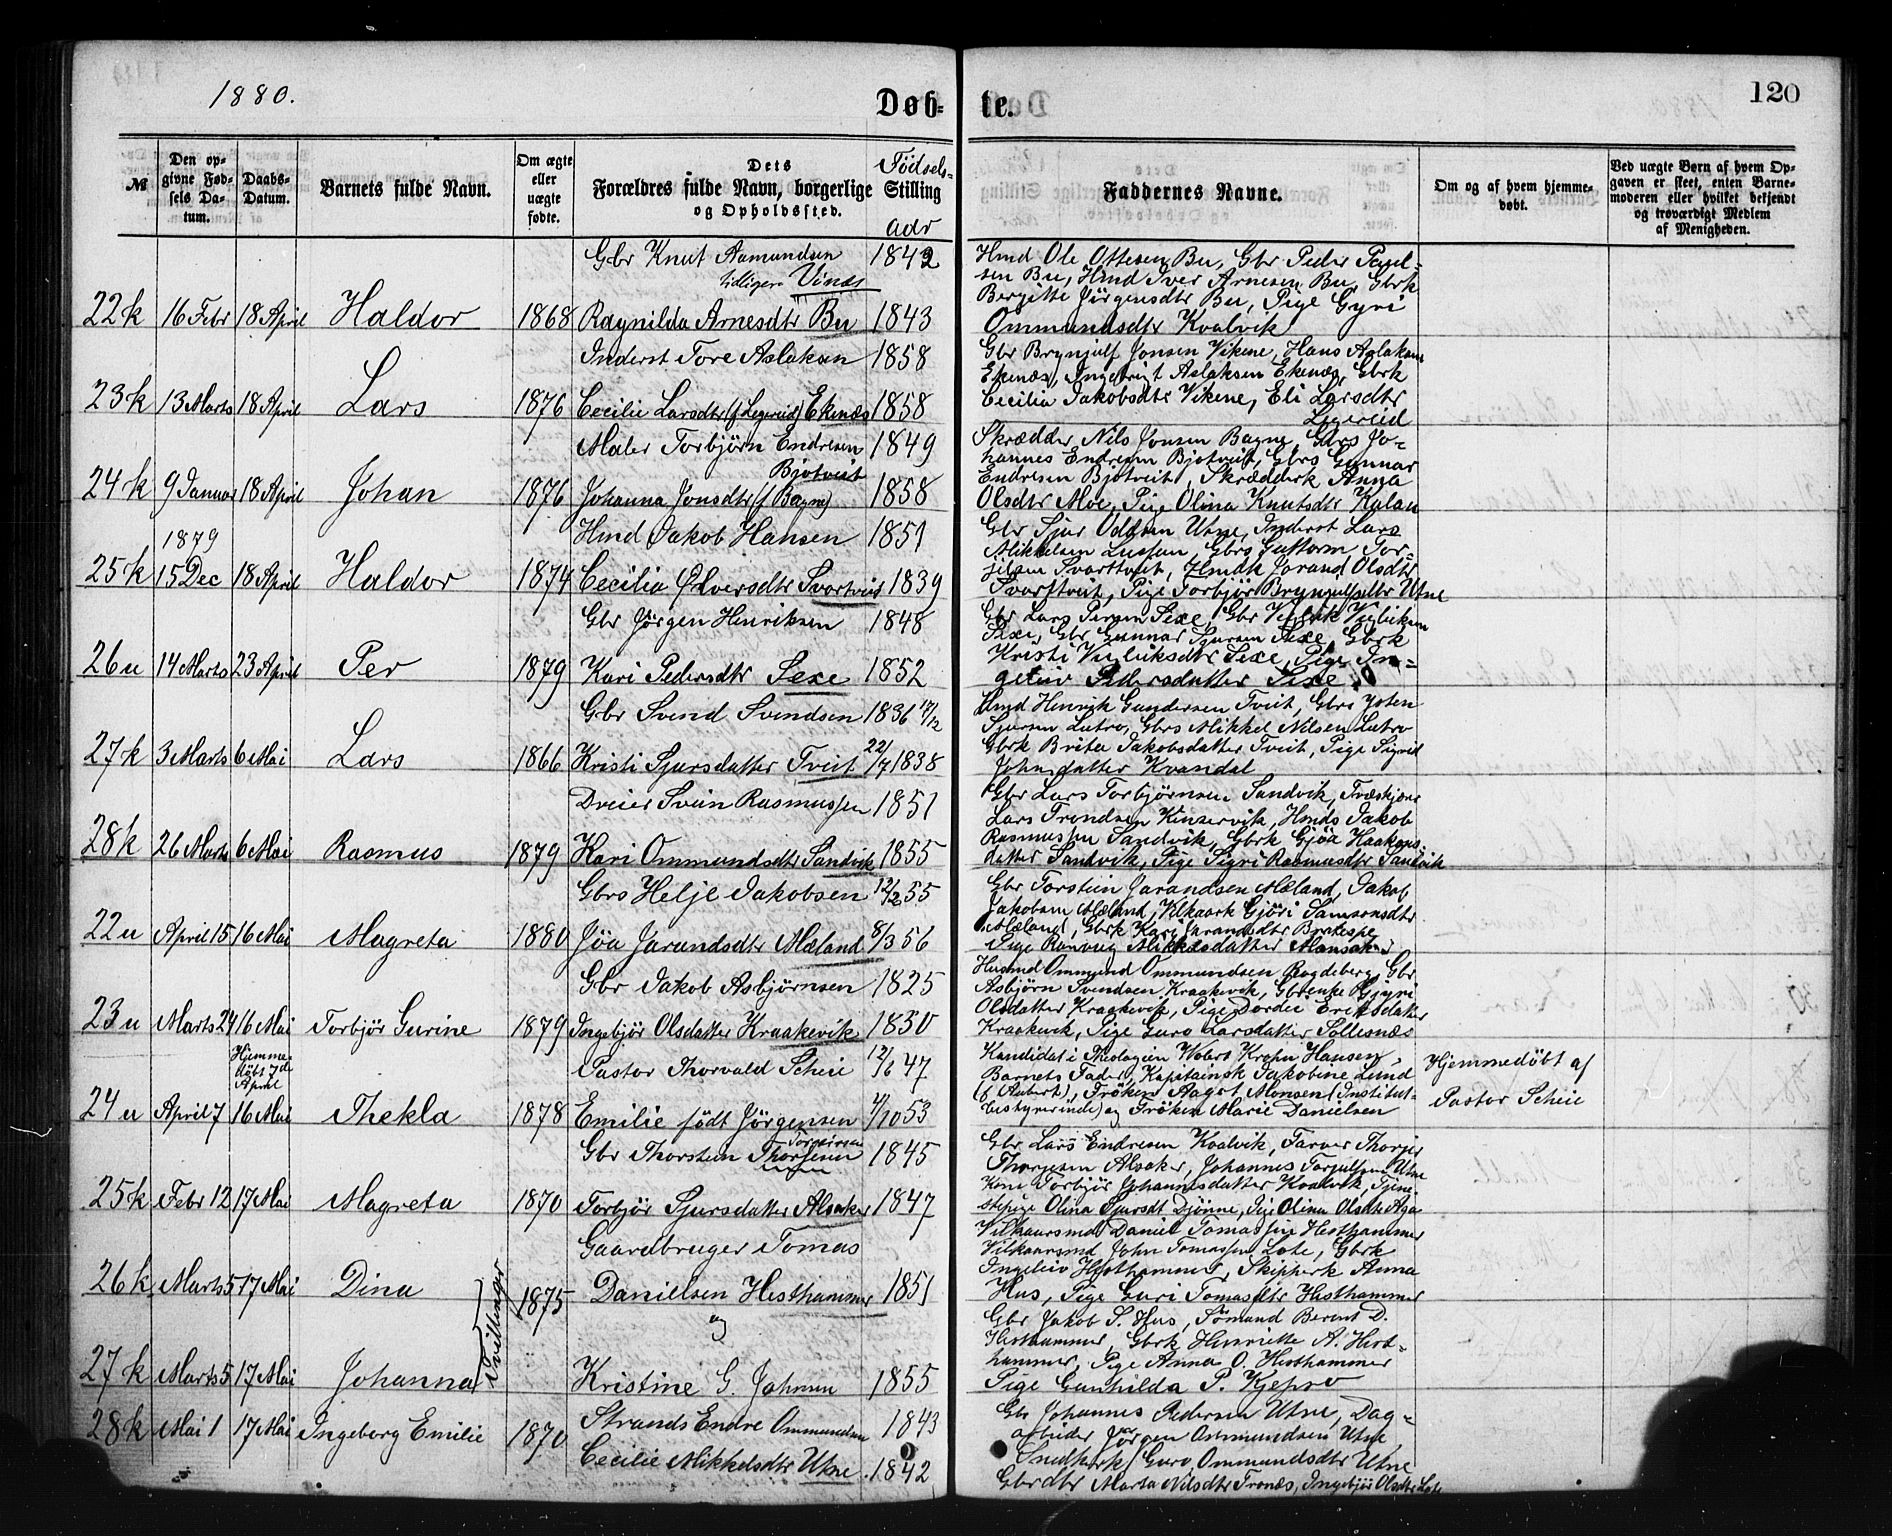 1880.
Døb-
te.
120
№
Den opgivne Fødsels Datum.
Daabs-Datum.
Barnets fulde Navn.
Om ægte eller uægte fødte.
Dets Forældres fulde Navn, borgerlige Stilling og Opholdssted.
Födsels-
adr
Faddernes Navne.
Om og af hvem hjemmedøbt.
Ved uægte Børn af hvem Opgaven er skeet, enten Barnemoderen eller hvilket bekjendt og troværdigt Medlem af Menigheden.
Gbr Knut Aamundsen 1842
tidligere Vines
22k 16 Febr 18 April Haldor 1868 Ragnilda Arnesdtr Bu 1843
Hmd Ole Ottesen Bu, Gbr Peder Paul-
sen Bu, Hmd Iver Arnesen Bu, Gbrk
Bergitte Jörgensdtr Bu, Pige Gyri
Ommundsdtr Kvalvik
Inderst Tore Aslaksen 1858
23k 13 Marts 18 April Lars 1876 Cecilie Larsdtr (f Legereid) Ekenæs 1858
Gbr Brynjulf Jonsen Vikene, Hans Aslaksen
Ekenæs, Ingebrigt Aslaksen Ekenæs, Gbrk
Cecilia Jakobsdtr Vikene, Eli Larsdtr
Legereid
Maler Torbjörn Endresen 1849
Bjotveit
24k 9 Januar 18 April Johan 1876 Johanna Jonsdtr (f Bagne) 1858
Skrædder Nils Jonsen Bagne, Gbrs Jo-
hannes Endresen Bjotveit, Gbrs Gunnar
Endresen Bjotveit, Skrædderk Anna
Olsdtr Moe, Pige Olina Knutsdtr
Hmd Jakob Hansen 1851
1879
25k 15 Dec 18 April Haldor 1874 Cecilia Ølversdtr Svartveit 1839
Gbr Sjur Oddsen Utne, Inderst Lars
Mikkelsen, Gbrs Guttorm Tor-
Svarttveit, Hmdk Jorand Olsdtr
Svarttveit, Pige Torbjör Brynjulfsdtr Utne
Gbr Jörgen Henriksen 1848
26u 14 Marts 23 April Per 1879 Kari Pedersdtr Sexe 1852
Gbr Lars Sexe, Gbr
Sexe, Gbr Gunnar Sjursen Sexe, Gbrk
Kristi Sexe, Pige In-
Pedersdatter Sexe
Gbr Svend Svendsen 1836 17/12
27k 3 Marts 6 Mai Lars 1866 Kristi Sjursdatter Tveit 22/7 1838
Hmd Henrik Gundersen Tveit, Gbrs
Sjursen Lutro, Gbrs Mikkel Nilsen Lutro
Gbrk Brita Jakobsdatter Tveit, Pige Sigrid
Johnsdatter Kvandal
Dreier Svein Rasmussen 1851
28k 26 Marts 6 Mai Rasmus 1879 Kari Ommundsdtr Sandvik 1855
Gbr Lars Torbjörnsen Sandvik, Træskjærer
Lars Trondsen Kinservik, Hmds Jakob
Rasmussen Sandvik, Gbrk Gjöa Haakons-
datter Sandvik, Pige Sigri Rasmusdtr Sandvik
Gbrs Helje Jakobsen 12/2 55
22u April 15 16 Mai Magreta 1880 Jöa Jarandsdtr Mæland 8/3 56
Gbr Torstein Jarandsen Mæland, Jakob
Jakobsen Mæland, Vilkaark Gjöri Samsonsdtr
Mæland, Gbrk Kari Jarandsdtr
Pige Ranveig Mikkelsdatter
Gbr Jakob Asbjörnsen 1825
23u Marts 24 16 Mai Torbjör Gurine 1879 Ingebjör Olsdatter Kraakevik 1830
Husmd Ommund Ommundsen Rogdeberg, Gbr
Asbjörn Svendsen Kraakevik, Gbrenke Gjyri
Olsdatter Kraakevik, Pige Dordei Eriksdatter
Kraakevik, Pige Guro Larsdatter Sollesnæs
Hjemme-
döbt 7de
April
Pastor Thorvald Scheie 12/6 47
24u April 7 16 Mai Thekla 1878 Emilie född Jörgensen 4/10 53
Kandidat i Theologien Wolert Krohn Hansen,
Barnets Fader, Kapitainsk Jakobine Lund
(f Aubert), Fröken Aagot Monsen (Institut-
bestyrerinde) og Fröken Marie Danielsen
Hjemmedöbt af
Pastor Scheie
Torgeirsen
Gbr Thorstein Thorjesen 1845
25k Febr 12 17 Mai Magreta 1870 Torbjör Sjursdatter Alsaker 1847
Gbr Lars Endresen Kvalvik, Farver Thorgir
Thorjesen Alsaker, Johannes Torjulfsen Utne
Kone Torbjör Johannesdatter Kvalvik, Tjene-
stepige Olina Sjursdt Djönne, Pige Olina Olsdtr Aga
Gaardbruger Tomas
26k Marts 5 17 Mai Dina 1875 Danielsen Hesthammer 1851
Tvillinger
Vilkaarsmd Daniel Tomassen Hesthammer
Vilkaarsmd John Tomassen Lote, Gbrk
Ingeleiv Hesthammer, Skipperk Anna
Hus, Pige Guri Tomasdtr Hesthammer
og
27k Marts 5 17 Mai Johanna Kristine G. Johnsen 1855
Gbr Jakob S. Hus, Sömand Berent D.
Hesthammer, Gbrk Henriette A. Hest-
hammer, Pige Anna O. Hesthammer
Pige Gunhilda P. Kjepso
Strands Endre Ommundsen 1843
28k Mai 1 17 Mai Ingeborg Emilie 1870 Cecilie Mikkelsdtr Utne 1842
Gbr Johannes Pedersen Utne, Dag-
arbeider Jörgen Ommundsen Utne
Snedkerk Guro Ommundsdtr Utne
Gbrdtr Marta Nilsdtr Tronæs, Ingebjör Olsdtr Lote